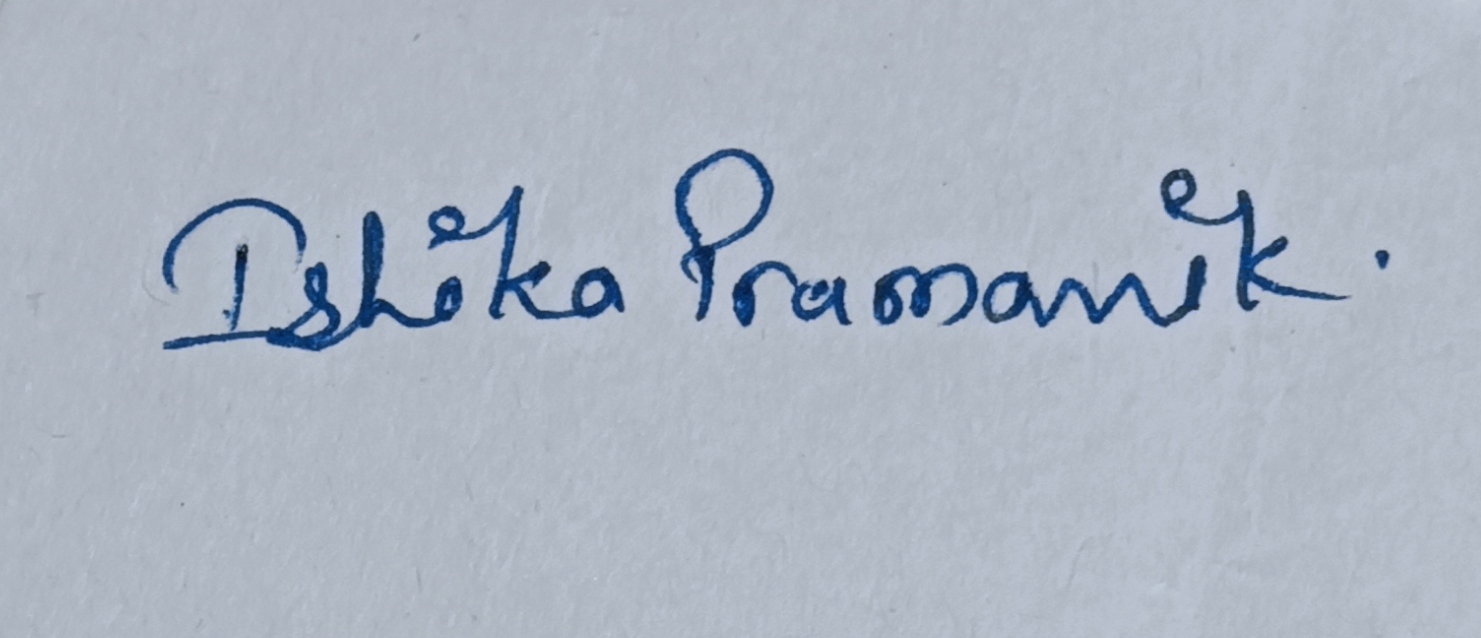 Ishika Pramanik.